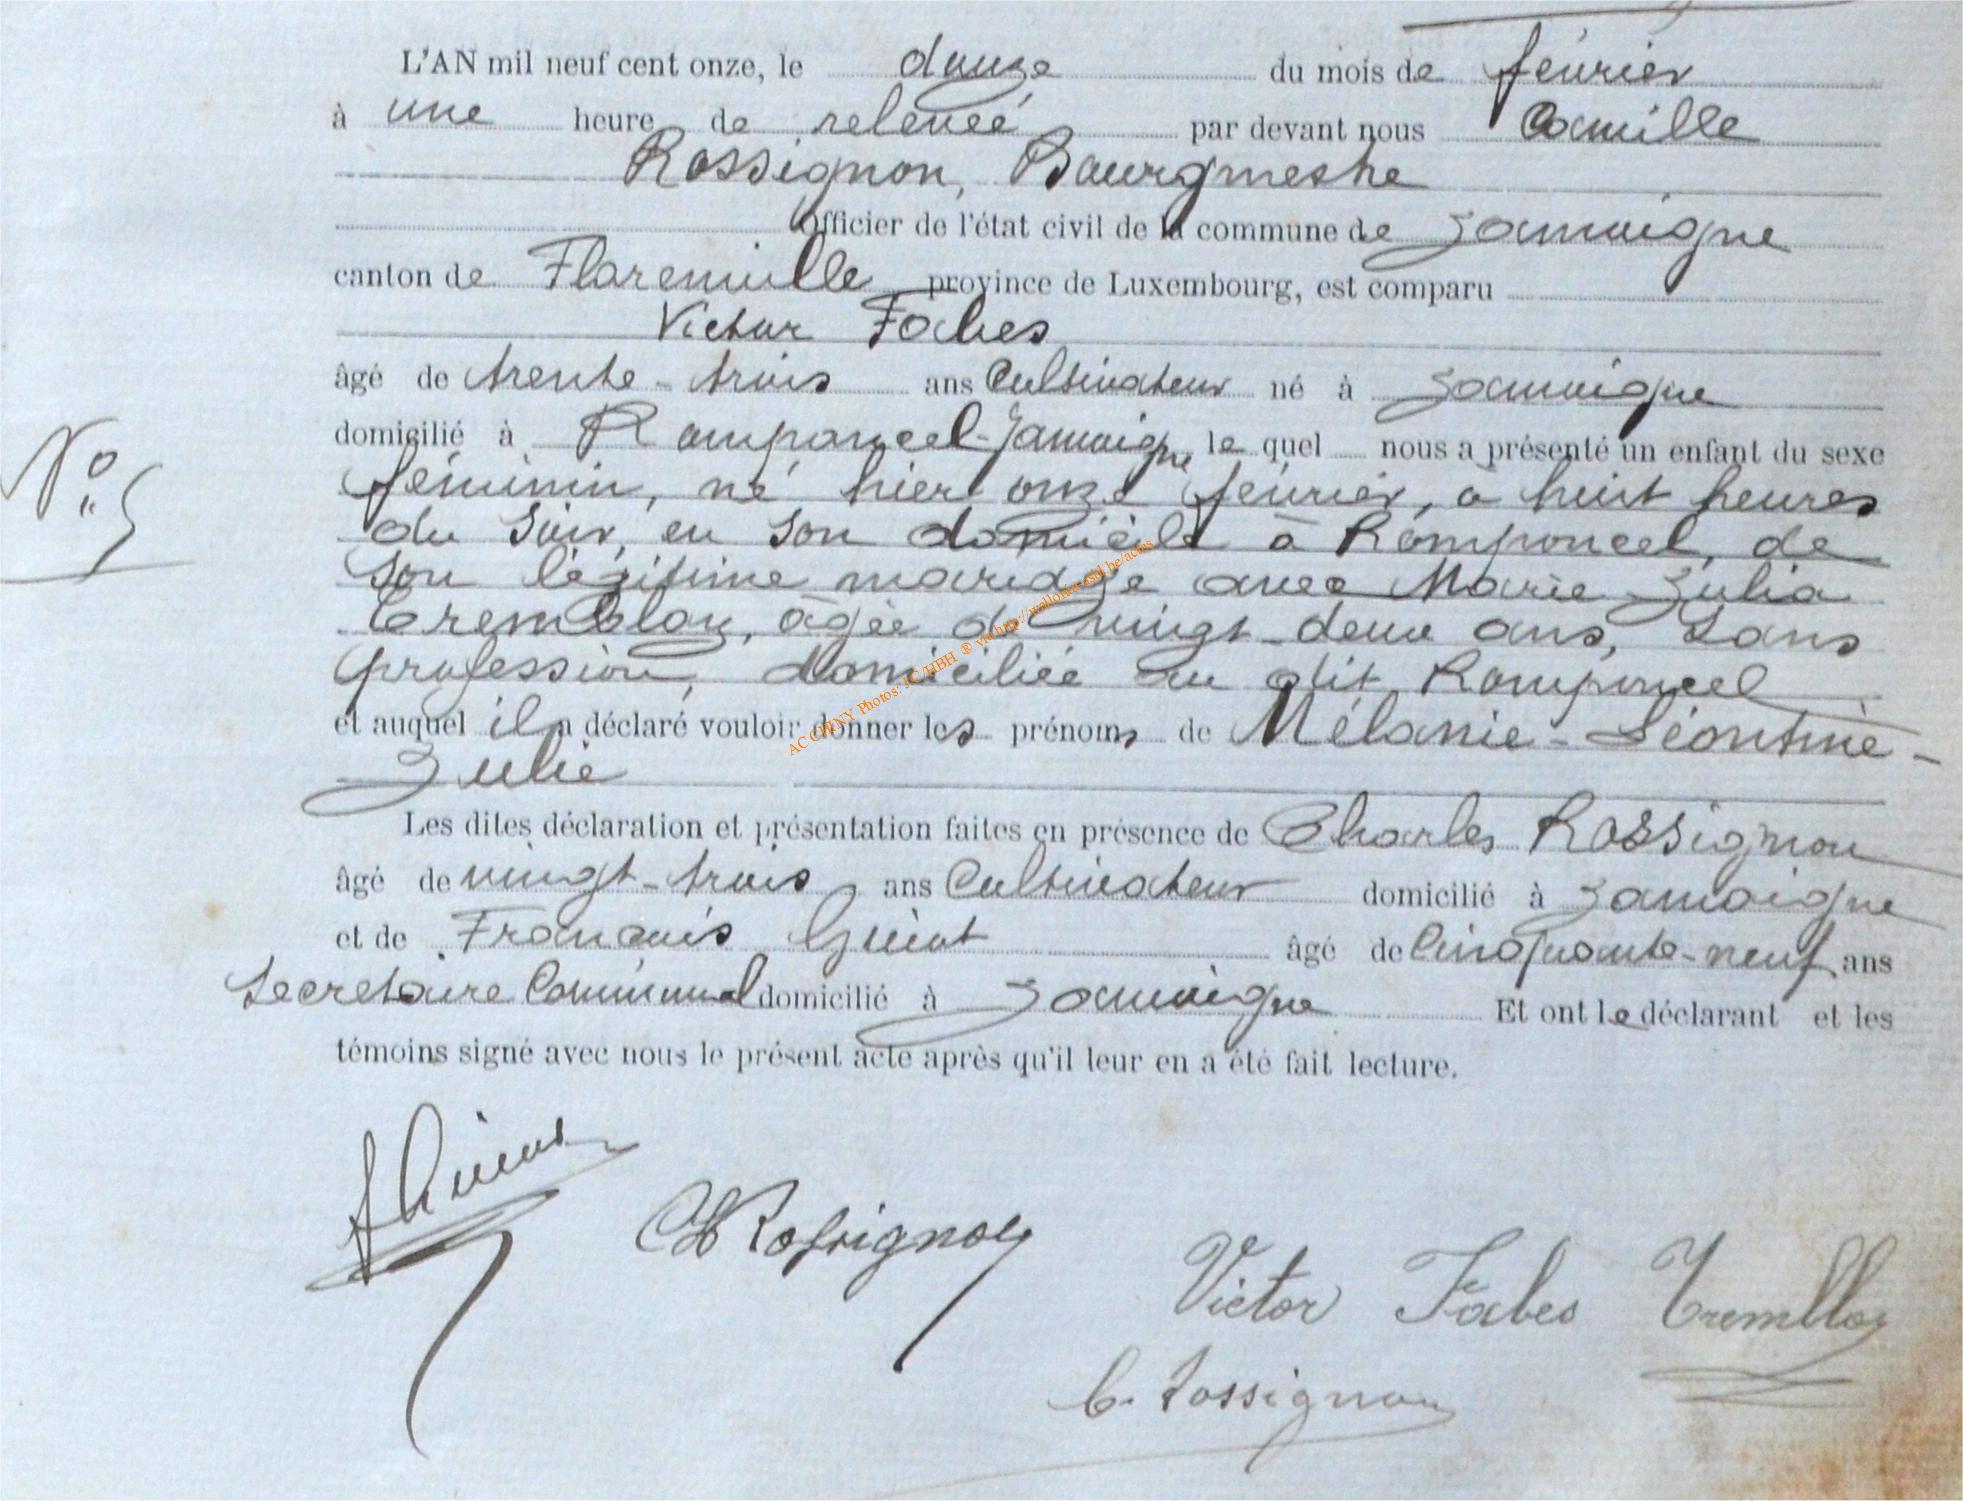 L'AN mil neuf cent onze, le douze du mois de février
à une heure de relevée par devant nous Camille
Rossignon, Bourgmestre
Officier de l'état civil de la commune de Jamoigne
canton de Florenville province de Luxembourg, est comparu
Victor Fabes
âgé de trente-trois ans Cultivateur né à Jamoigne
domicilié à Romponcel-Jamoigne le quel nous a présenté un enfant du sexe
N° 5
féminin, né hier onze février, à huit heures
du soir, en son domicile à Romponcel, de
son légitime mariage avec Marie Julia
Trembloy, âgée de vingt-deux ans, sans
profession, domiciliée au dit Romponcel
et auquel il a déclaré vouloir donner les prénoms de Mélanie-Léontine-
Julie
Les dites déclaration et présentation faites en présence de Charles Rossignon
âgé de vingt-trois ans Cultivateur domicilié à Jamoigne
et de François Guiot âgé de Cinquante-neuf ans
Secrétaire Communal domicilié à Jamoigne Et ont le déclarant et les
témoins signé avec nous le présent acte après qu'il leur en a été fait lecture.
Ch Rossignon
Victor Fabes Tremlloy
C. Rossignon
AC CHINY Photos: JC/HBH ® via http://wallonia-asbl.be/actes